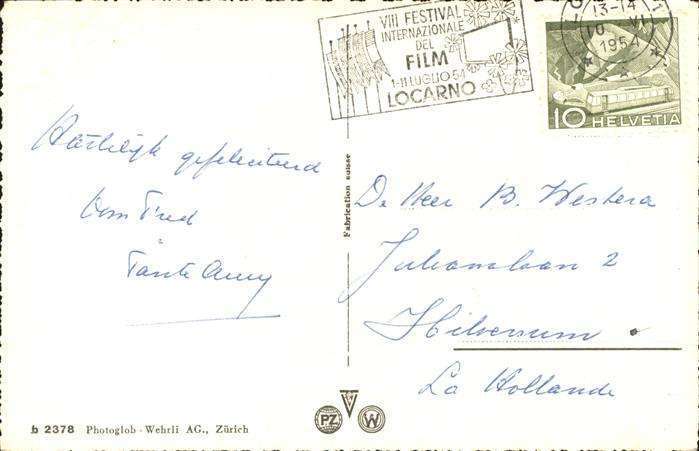 VIII FESTIVAL
INTERNAZIONALE
DEL
FILM
1-11 LUGLIO 54
LOCARNO
13-14
10 VI
1954
10 HELVETIA
Hartelijk gefeliciteerd
Oom Fred
Tante Anny
Fabrication suisse
De Heer B. Westera
Julianalaan 2
Hilversum.
La Hollande
b 2378 Photoglob-Wehrli AG., Zürich
PZ
W